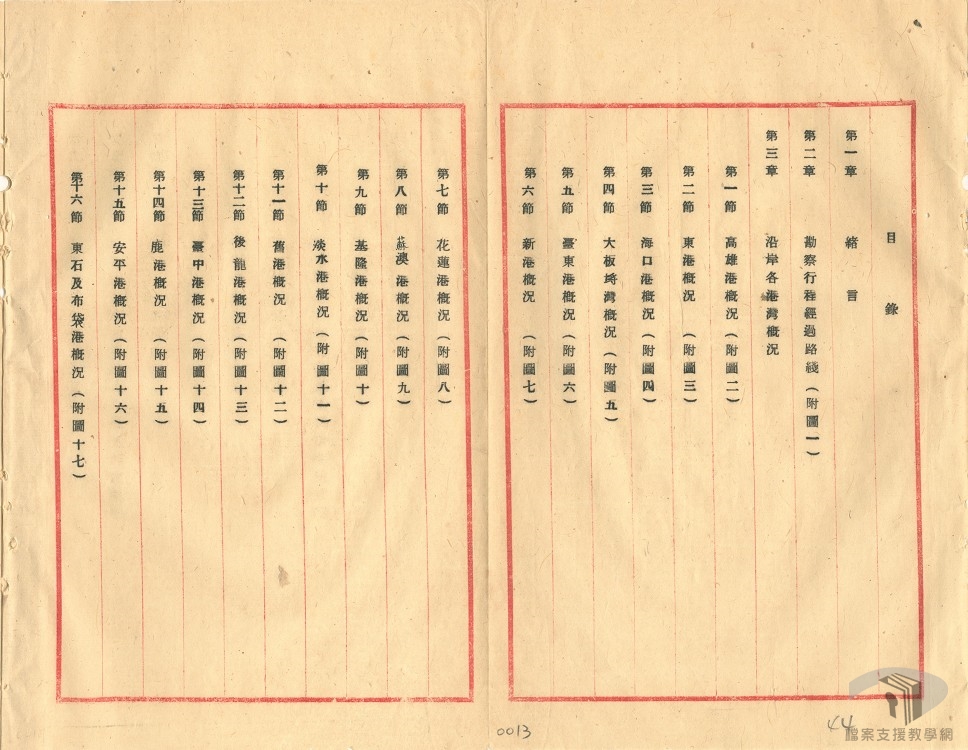 目錄
第一章 緒言
第二章 勘察行程經過路綫（附圖一）
第三章 沿岸各港灣概況
第一節 高雄港概況（附圖二）
第二節 東港概況（附圖三）
第三節 海口港概況（附圖四）
第四節 大板埓灣概況（附圖五）
第五節 臺東港概況（附圖六）
第六節 新港概況（附圖七）
第七節 花蓮港概況（附圖八）
第八節 蘇澳港概況（附圖九）
第九節 基隆港概況（附圖十）
第十節 淡水港概況（附圖十一）
第十一節 舊港概況（附圖十二）
第十二節 後龍港概況（附圖十三）
第十三節 臺中港概況（附圖十四）
第十四節 鹿港概況（附圖十五）
第十五節 安平港概況（附圖十六）
第十六節 東石及布袋港概況（附圖十七）
0013
44
檔案支援教學網